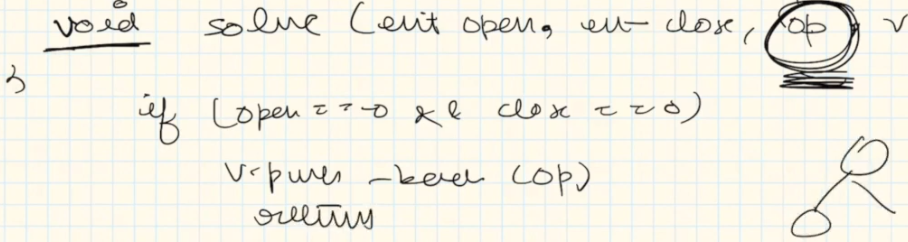 void solve (int open, int close, op, v
{
if (open == 0 && close == 0)
v.push_back (op)
return